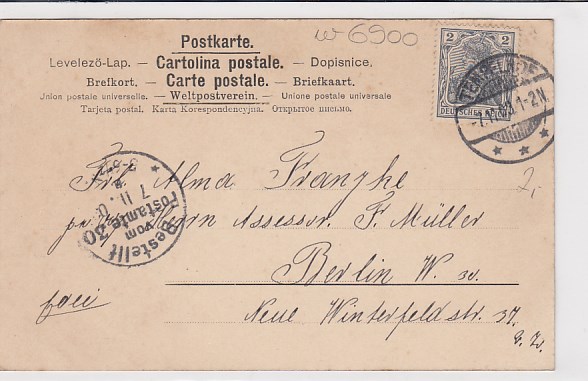 Postkarte.
w 6900
Levelező-Lap. — Cartolina postale. — Dopisnice.
Brefkort. — Carte postale. — Briefkaart.
Union postale universelle. — Weltpostverein. — Unione postale universale
Tarjeta postal. Karta Korespondencyjna. Открытое письмо.
2 2
DEUTSCHES REICH
1-2N.
Frl. Alma Franzke
2,-
Herrn Assessor F. Müller
Berlin W. 30.
frei
Neue Winterfeldstr. 37.
Bestellt
vom
Postamte 30
7 11